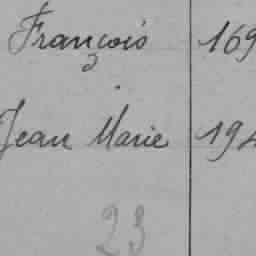 François 169
Jean Marie 194
23